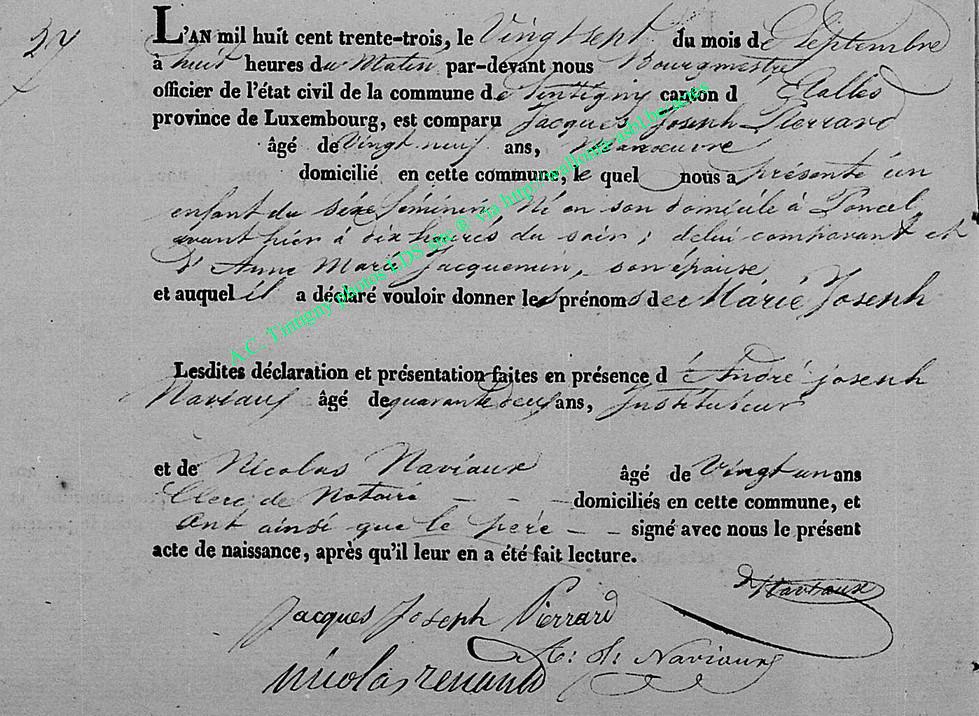 27
L'AN mil huit cent trente-trois, le Vingt sept du mois de Septembre
à huit heures du Matin par-devant nous Bourgmestre
officier de l'état civil de la commune de Tintigny canton d Etalle
province de Luxembourg, est comparu Jacques Joseph Pierrard
âgé de Vingt neuf ans, Manoeuvre
domicilié en cette commune, le quel nous a présenté un
enfant du sexe féminin Né en son domicile à Poncel
avant hier à dix heures du soir ; de lui comparant et
d' Anne Marie Jacquemin, son épouse
et auquel il a déclaré vouloir donner les prénoms de Marie Joseph
Lesdites déclaration et présentation faites en présence d André joseph
Naviaux âgé de quarante deux ans, Instituteur
et de Nicolas Naviaux âgé de Vingt un ans
Clerc de Notaire - - - domiciliés en cette commune, et
Ont ainsi que le père - - signé avec nous le présent
acte de naissance, après qu'il leur en a été fait lecture.
Naviaux
Jacques Joseph Pierrard
A: J: Naviaux
nicolas renauld
A.C. Tintigny photos LDS site ® via http://wallonia-asbl.be/actes